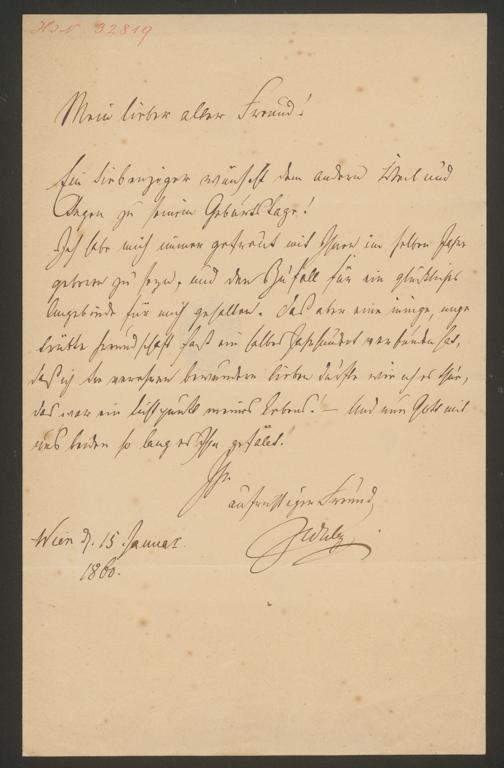 HIN 32819
Mein lieber alter Freund!
Ein Siebenziger wünscht dem andern Heil und
Segen zu seinem Geburtstage!
Ich habe mich immer gefreut mit Ihnen im selben Jahre
geboren zu seyn, und den Zufall für ein glückliches
Angebinde für mich gehalten. Das aber eine innige, unge
trübte Freundschaft fast ein halbes Jahrhundert verbunden hat,
daß ich Sie verehren bewundern lieben durfte wie ich es thue,
das war ein Lichtpunkt meines Lebens. – Und nun Gott mit
uns beiden so lang es Ihm gefällt.
Ihr
aufrichtiger Freund
Wien d. 15 Januar
1860.